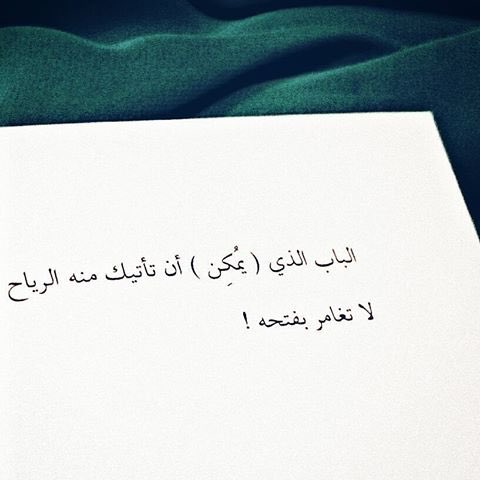 الباب الذي ( يمُكِن ) أن تأتيك منه الرياح
لا تغامر بفتحه !